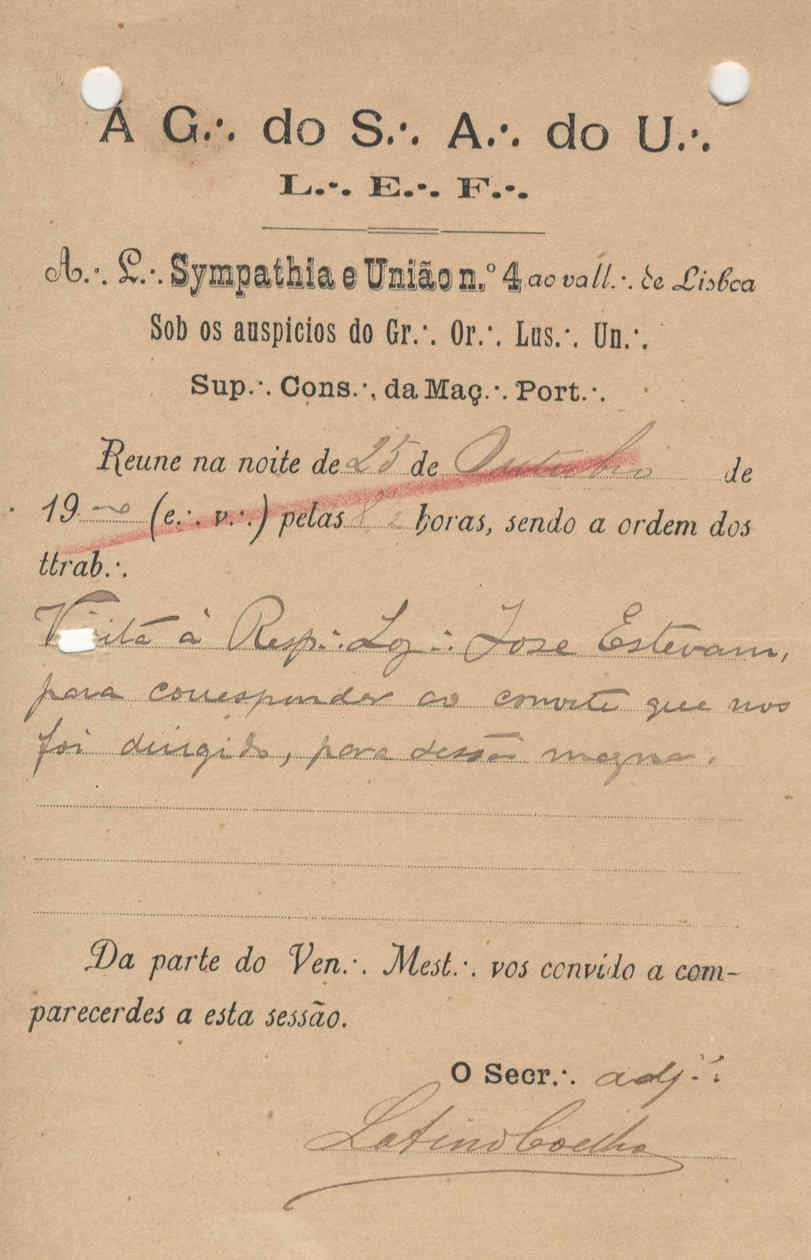 Á G.·. do S.·. A.·. do U.·.
L.·. E.·. F.·.
A.·. L.·. Sympathia e União n.º 4 ao vall.·. de Lisboa
Sob os auspicios do Gr.·. Or.·. Lus.·. Un.·.
Sup.·. Cons.·. da Maç.·. Port.·.
Reune na noite de 25 de Outubro de
19 (e.·. v.·.) pelas 8 horas, sendo a ordem dos
ttrab.·.
Visita à Resp.·. Loj.·. Jose Estevam,
para corresponder ao convite que nos
foi dirigido, para sessão magna.
Da parte do Ven.·. Mest.·. vos convido a com-
parecerdes a esta sessão.
O Secr.·. adj.·.
Latino Coelho